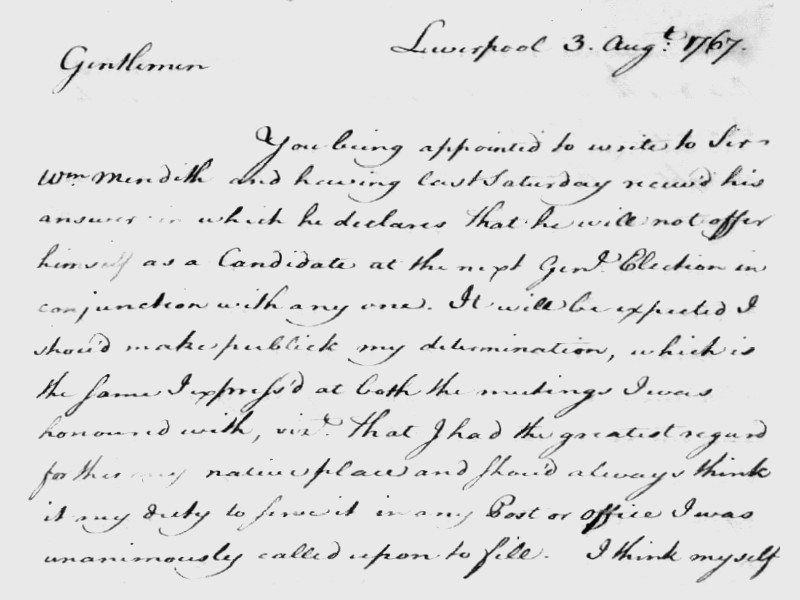 Liverpool 3. Augt. 1767.
Gentlemen
You being appointed to write to Sir
Wm Meredith and having last Saturday receiv'd his
answer in which he declares that he will not offer
himself as a Candidate at the next Genl. Election in
conjunction with any one. It will be expected I
shou'd make publick my determination, which is
the same I express'd at both the meetings I was
honoured with, vizt. that I had the greatest regard
for this my native place and shou'd always think
it my duty to serve it in any Post or office I was
unanimously called upon to fill. I think myself